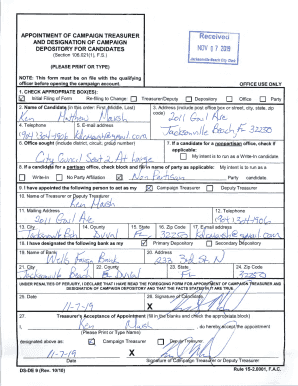 APPOINTMENT OF CAMPAIGN TREASURER
AND DESIGNATION OF CAMPAIGN
DEPOSITORY FOR CANDIDATES
(Section 106.021(1), F.S.)
(PLEASE PRINT OR TYPE)
NOTE: This form must be on file with the qualifying
officer before opening the campaign account.
Received
NOV 07 2019
Jacksonville Beach City Clerk
OFFICE USE ONLY
1. CHECK APPROPRIATE BOX(ES):
Initial Filing of Form Re-filing to Change: Treasurer/Deputy Depository Office Party
2. Name of Candidate (in this order: First, Middle, Last)
Ken Matthew Marsh
3. Address (include post office box or street, city, state, zip
code)
2011 Gail Ave
Jacksonville Beach, FL 32250
4. Telephone
5. E-mail address
6. Office sought (include district, circuit, group number)
City Council Seat 2, At Large
7. If a candidate for a nonpartisan office, check if
applicable:
My intent is to run as a Write-In candidate.
8. If a candidate for a partisan office, check block and fill in name of party as applicable: My intent is to run as a
Write-In No Party Affiliation Non Partisan Party candidate.
9. I have appointed the following person to act as my Campaign Treasurer Deputy Treasurer
10. Name of Treasurer or Deputy Treasurer
Ken Marsh
11. Mailing Address
2011 Gail Ave
12. Telephone
13. City
14. County
15. State
16. Zip Code
17. E-mail address
Jacksonville Bch Duval FL 32250
18. I have designated the following bank as my Primary Depository Secondary Depository
19. Name of Bank
Wells Fargo Bank
20. Address
233 3rd St N
21. City
22. County
23. State
24. Zip Code
Jacksonville Beach Duval FL 32250
UNDER PENALTIES OF PERJURY, I DECLARE THAT I HAVE READ THE FOREGOING FORM FOR APPOINTMENT OF CAMPAIGN TREASURER AND
DESIGNATION OF CAMPAIGN DEPOSITORY AND THAT THE FACTS STATED IN IT ARE TRUE.
25. Date
11-7-19
26. Signature of Candidate
27. Treasurer's Acceptance of Appointment (fill in the blanks and check the appropriate block)
I, Ken Marsh, do hereby accept the appointment
(Please Print or Type Name)
designated above as: Campaign Treasurer Deputy Treasurer.
11-7-19
Date
Signature of Campaign Treasurer or Deputy Treasurer
DS-DE 9 (Rev. 10/10)
Rule 1S-2.0001, F.A.C.